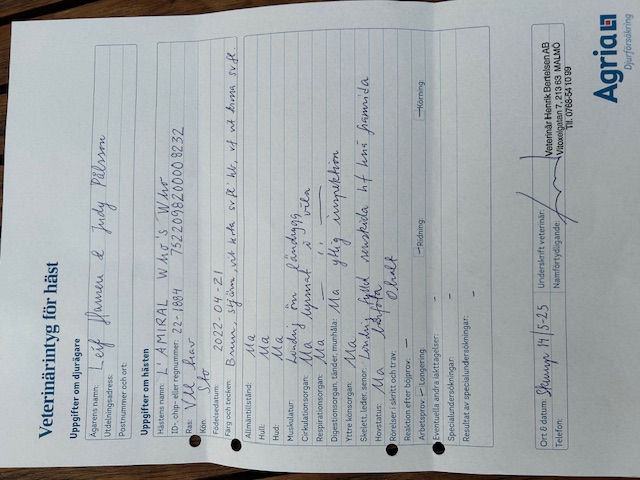 Veterinärintyg för häst
Uppgifter om djurägare
Ägarens namn: Leif & Judy Pålsson
Utdelningsadress:
Postnummer och ort:
Uppgifter om hästen
Hästens namn: L'AMIRAL Who's Who
ID-, chip- eller regnummer: 22-1884 752209820000 8232
Ras: VLL
Kön: Sto
Födelsedatum: 2022-04-21
Färg och tecken: Brun, stjärn, vit
Allmäntillstånd: Ua
Hull: Ua
Hud: Ua
Muskulatur: Lindrig öm ländrygg
Cirkulationsorgan: Ua lyssnat i vila
Respirationsorgan: Ua —"—
Digestionsorgan, tänder, munhåla: Ua ytlig inspektion
Yttre könsorgan: Ua
Skelett, leder, senor: Lindrig fylld senskida hf knä framsida
Hovstatus: Ua
Rörelser i skritt och trav: Ohalt
Reaktion efter böjprov: -
Arbetsprov: - Longering: - Ridning: - Körning:
Eventuella andra iakttagelser: -
Specialundersökningar: -
Resultat av specialundersökningar: -
Ort & datum: Skurup 14/5-25 Underskrift veterinär:
Telefon: Namnförtydligande: Veterinär Henrik Bertelsen AB
Vitoxelgatan 7, 213 63 MALMÖ
Tlf. 0768-54 10 99
Agria
Djurförsäkring